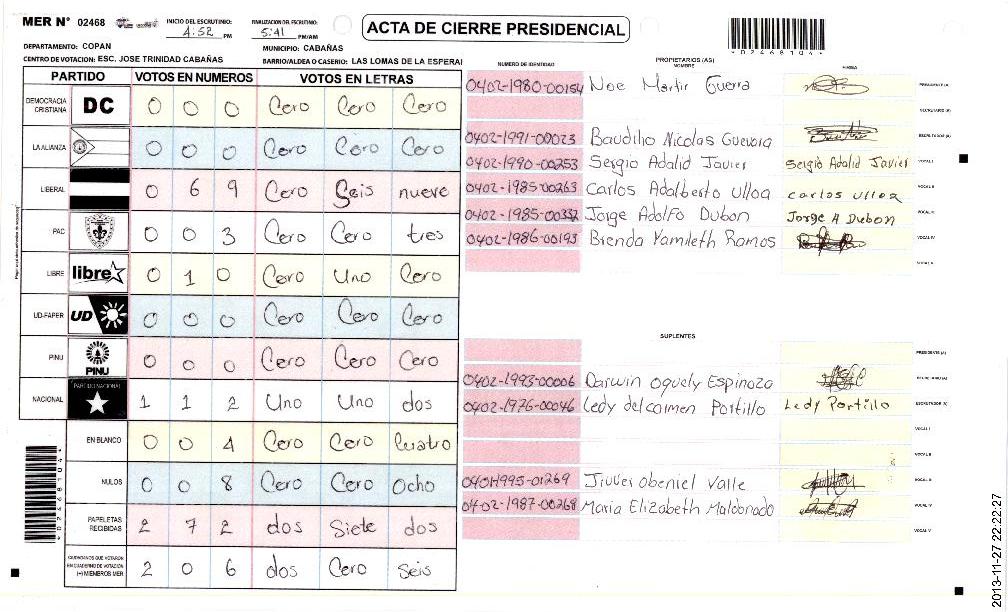 MER N° 02468
INICIO DEL ESCRUTINIO: 4:52 PM
FINALIZACION DEL ESCRUTINIO: 5:41 PM/AM
ACTA DE CIERRE PRESIDENCIAL
*02468104*
DEPARTAMENTO: COPAN
MUNICIPIO: CABAÑAS
CENTRO DE VOTACION: ESC. JOSE TRINIDAD CABAÑAS
BARRIO/ALDEA O CASERIO: LAS LOMAS DE LA ESPERA
PARTIDO VOTOS EN NUMEROS VOTOS EN LETRAS
DEMOCRACIA CRISTIANA DC 0 0 0 Cero Cero Cero
LA ALIANZA 0 0 0 Cero Cero Cero
LIBERAL 0 6 9 Cero Seis nueve
PAC 0 0 3 Cero Cero tres
LIBRE libre 0 1 0 Cero Uno Cero
UD-FAPER UD 0 0 0 Cero Cero Cero
PINU PINU 0 0 0 Cero Cero Cero
NACIONAL PARTIDO NACIONAL 1 1 2 Uno Uno dos
EN BLANCO 0 0 4 Cero Cero Cuatro
NULOS 0 0 8 Cero Cero Ocho
PAPELETAS RECIBIDAS 2 7 2 dos Siete dos
CIUDADANOS QUE VOTARON EN CUADERNO DE VOTACION (+) MIEMBROS MER 2 0 6 dos Cero Seis
*02468104*
PROPIETARIOS (AS)
NUMERO DE IDENTIDAD NOMBRE FIRMA
0402-1980-00154 Noe Martir Guerra PRESIDENTE (A)
SECRETARIO (A)
0402-1991-00023 Baudilio Nicolas Guevara ESCRUTADOR (A)
0402-1990-00253 Sergio Adalid Javier Sergio Adalid Javier VOCAL I
0402-1985-00263 Carlos Adalberto Ulloa carlos ulloa VOCAL II
0402-1985-00332 Jorge Adolfo Dubon Jorge A Dubon VOCAL III
0402-1986-00193 Brenda Yamileth Ramos VOCAL IV
VOCAL V
SUPLENTES
PRESIDENTE (A)
0402-1993-00006 Darwin oquely Espinoza SECRETARIO (A)
0402-1976-00046 Ledy del carmen Portillo Ledy Portillo ESCRUTADOR (A)
VOCAL I
VOCAL II
obeniel Valle VOCAL III
0402-1987-00268 Maria Elizabeth Maldonado VOCAL IV
VOCAL V
2013-11-27 22:22:27